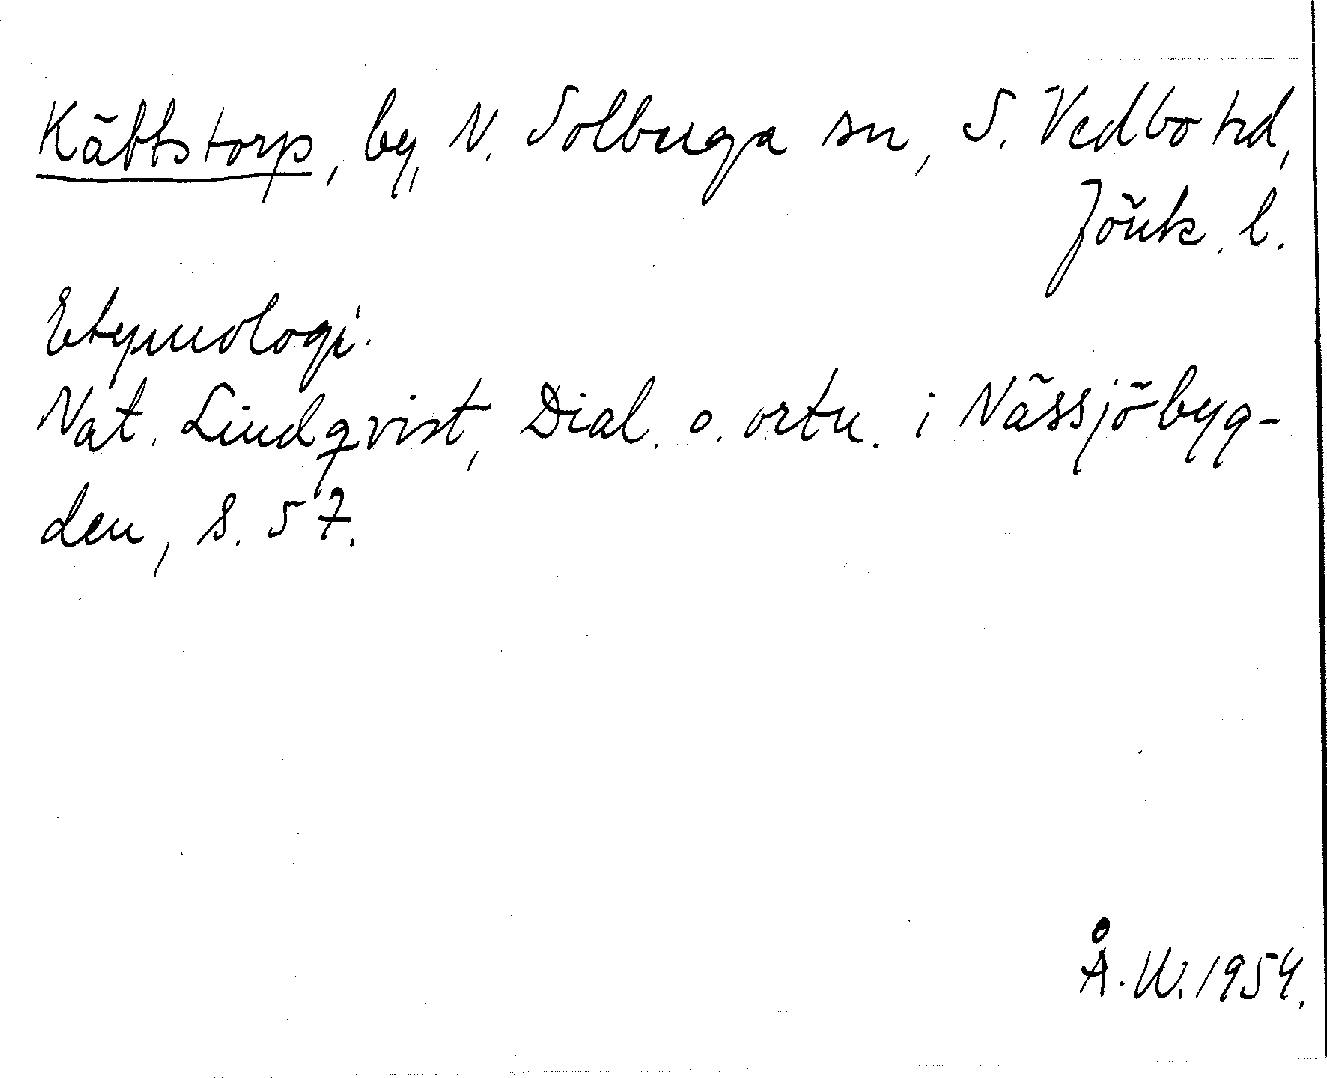 Käbbstorp, by, N. Solberga sn, S. Vedbo hd,
Jönk. l.
Etymologi.
Nat. Lindqvist, Dial. o. ortn. i Nässjöbyg-
den, s. 57.
Å.W. 1954.